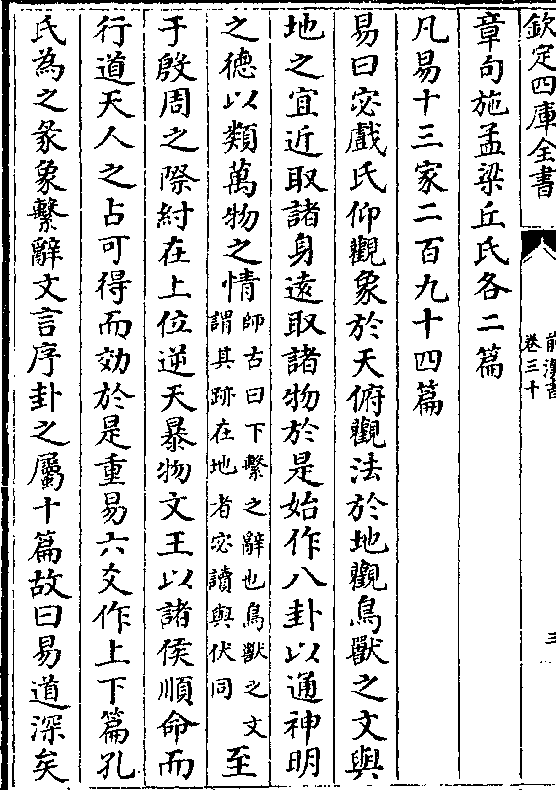 欽定四庫全書
前漢書
卷三十
三
章句施孟梁丘氏各二篇
凡易十三家二百九十四篇
易曰宓戲氏仰觀象於天俯觀法於地觀鳥獸之文與
地之宜近取諸身逺取諸物於是始作八卦以通神明
之德以類萬物之情
師古曰下繫之辭也鳥獸之文
謂其跡在地者宓讀與伏同
至
于殷周之際紂在上位逆天暴物文王以諸侯順命而
行道天人之占可得而効於是重易六爻作上下篇孔
氏為之彖象繫辭文言序卦之屬十篇故曰易道深矣